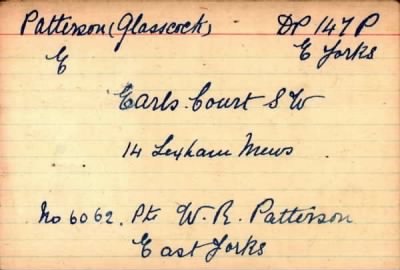 Patterson (Glasscock) DP 147 P
E E Yorks
Earls Court S W
14 Lexham Mews
No 6062. Pte W. R. Patterson
East Yorks